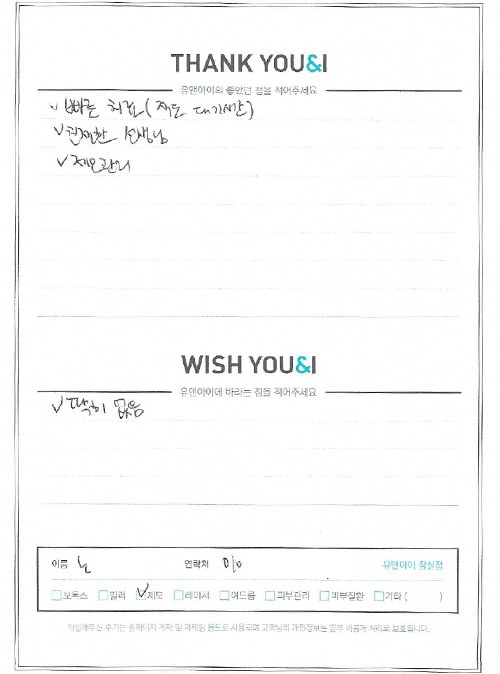 THANK YOU&I
유앤아이의 좋았던 점을 적어주세요
✓ 빠른 치료 (적은 대기시간)
✓ 친절한 선생님
✓ 제모관리
WISH YOU&I
유앤아이에 바라는 점을 적어주세요
✓ 딱히 없음
이름 노 연락처 010 유앤아이 잠실점
보톡스 필러 ✓제모 레이저 여드름 피부관리 피부질환 기타 ( )
작성해주신 후기는 홈페이지 게재 및 마케팅 용도로 사용되며 고객님의 개인정보는 일부 비공개 처리로 보호됩니다.